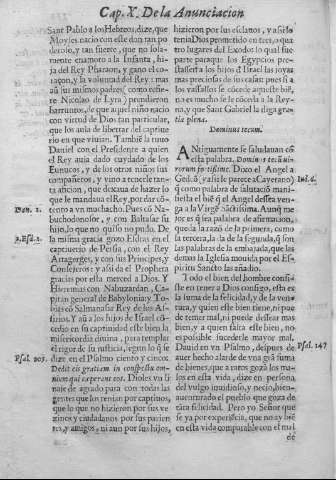 Cap. X. De la Anunciacion
Sant Pablo a los Hebreos, dize, que
Moyses nacio con este don tan po-
deroso, y tan fuerte, que no sola-
mente enamoro a la Infanta, hi-
ja del Rey Pharaon, y gano el co-
raçon, y la voluntad del Rey: mas
aũ sus mismos padres (como refie-
re Nicolas de Lyra) prendieron
barruntos, de que aquel niño nacio
con virtud de Dios tan particular,
que los auia de libertar del captiue
rio en que viuian. Tambiē la tuuo
Daniel con el Presidente a quien
el Rey auia dado cuydado de los
Eunucos, y de los otros niños sus
compañeros, y vino a tenerle tan-
ta aficion, que dexaua de hazer lo
que le mandaua el Rey, por dar cō-
tento a vn muchacho. Pues cō Na-
buchodonosor, y con Baltasar su
hijo, lo que no quiso no pudo. De
la misma gracia gozo Esdras en el
captiuerio de Persia, con el Rey
Artaxerges, y con sus Principes, y
Consejeros: y assi da el Propheta
gracias por esta merced a Dios. Y
Hieremias con Nabuzardan, Ca-
pitan general de Babylonia; y To-
bias cō Salmanasar Rey de los As-
sirios. Y aũ a los hijos de Israel cō-
cedio en su captiuidad este bien la
misericordia diuina, para templar
el rigor de su justicia, segun lo q̃ se
dize en el Psalmo ciento y cinco:
Dedit eis gratiam in conspectu om-
nium qui ceperant eos. Dioles vn li
naje de agrado para con todas las
gentes que los tenian por captiuos,
que lo que no hizieron por sus ve-
zinos y ciudadanos por sus parien
tes, y amigos, ni aun por sus hijos,
Dan. 1.
1. Esd. 2.
Psal. 105.
hizieron por sus esclauos, y assi lo
tenia Dios prometido en tres, o qua
tro lugares del Exodo: lo qual fue
parte paraque los Egypcios pre-
stassen a los hijos d̃ Israel las joyas
mas preciosas de sus casas: pues si a
los vassallos se cōcede aqueste biē,
no es mucho se cōceda a la Rey-
na, y que Sant Gabriel la diga gra-
tia plena.
Dominus tecum.
ANtiguamente se saludauan cō
esta palabra. Dominus tecũ vi-
rorum fortissime. Dixo el Angel a
Gedeō, y assi le parece a (Cayetano)
q̃ como palabra de salutaciō mani-
fiesta el biē q̃ el Angel dessea ven-
ga a la Virgē sāctissima. Aunq̃ me
jor es q̃ sea palabra de afirmacion,
que da la razō de la primera, como
la tercera, la da de la segunda, q̃ son
las palabras de la embaxada, que las
demas la Iglesia mouida por el Es-
piritu Sancto las añadio.
Todo el bien del hombre consi-
ste en tener a Dios consigo, esto es
la suma de la felicidad, y de la ven-
tura, y quien este bien tiene, ni pue
de temer mal, ni puede dessear mas
bien, y a quien falta este bien, no
es possible sucederle mayor mal.
Dauid en vn Psalmo, despues de
auer hecho alarde de vna grā suma
de bienes, que a ratos gozā los ma-
los en esta vida, dize en persona
del vulgo inquisidor, y necio, bien-
auenturado el pueblo que goza de
tāta felicidad. Pero yo Señor que
se ya por experiēcia, que no ay biē
en esta vida comparable con el mal
de
Iud. 6.
Psal. 147